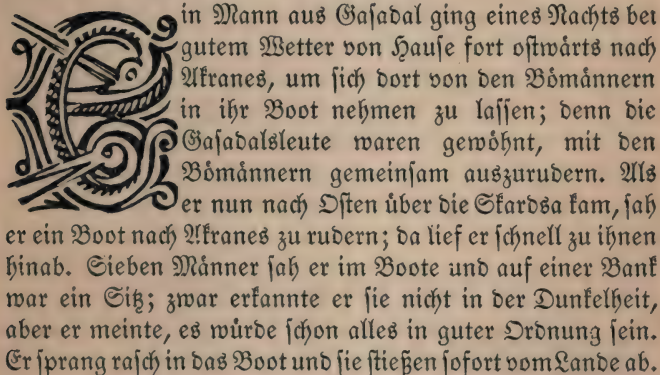 Ein Mann aus Gasadal ging eines Nachts bei
gutem Wetter von Hause fort ostwärts nach
Akranes, um sich dort von den Bömännern
in ihr Boot nehmen zu lassen; denn die
Gasadalsleute waren gewöhnt, mit den
Bömännern gemeinsam auszurudern. Als
er nun nach Osten über die Skardsa kam, sah
er ein Boot nach Akranes zu rudern; da lief er schnell zu ihnen
hinab. Sieben Männer sah er im Boote und auf einer Bank
war ein Sitz; zwar erkannte er sie nicht in der Dunkelheit,
aber er meinte, es würde schon alles in guter Ordnung sein.
Er sprang rasch in das Boot und sie stießen sofort vom Lande ab.